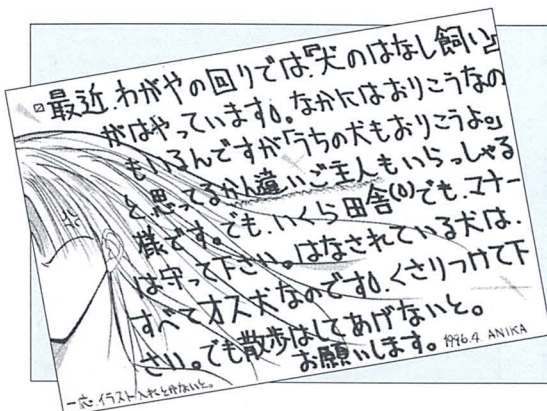 最近、わがやの回りでは、『犬のはなし飼い』
がはやっています。なかにはおりこうなの
もいるんですが「うちの犬もおりこうよ。」
と思ってるかん違いご主人もいらっしゃる
様です。でも、いくら田舎(0)でも、マナー
は守って下さい。はなされている犬は、
すべてオス犬なのです。くさりつけて下
さい。でも散歩はしてあげないと。
お願いします。 1996.4. ANIKA
一応、イラスト入れとかないと。